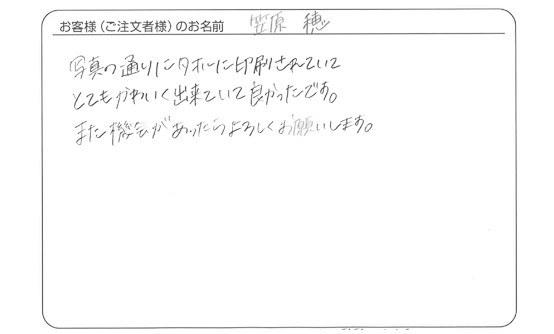 お客様（ご注文者様）のお名前 笠原 穂
写真の通りにタオルに印刷されていて
とてもかわいく出来ていて良かったです。
また機会があったらよろしくお願いします。